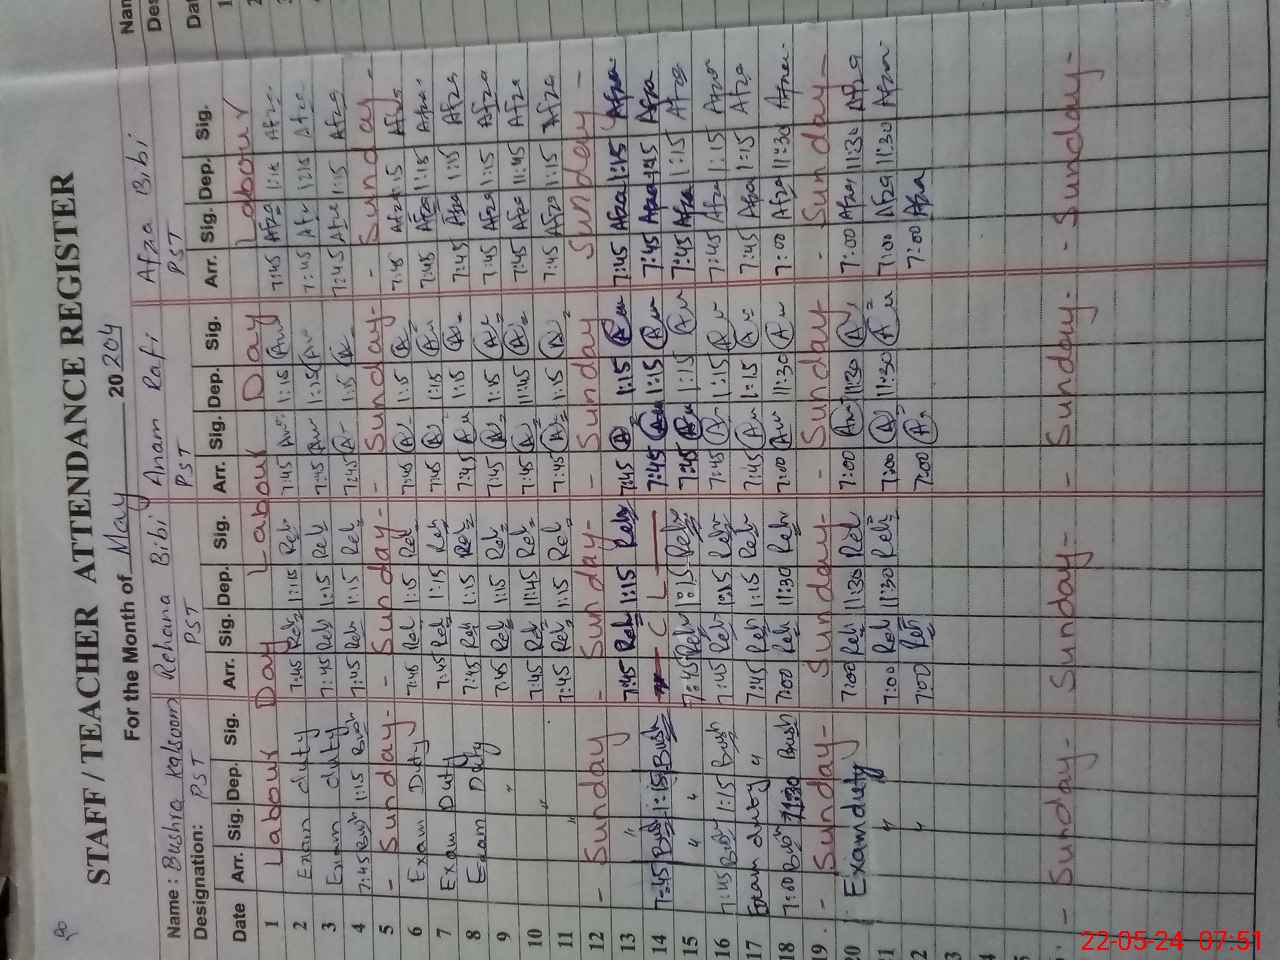 STAFF / TEACHER ATTENDANCE REGISTER
For the Month of May 20204
Name : Bushra Kalsoom Rehana Bibi Anam Rafi Afza Bibi
Designation: PST PST PST PST
Date Arr. Sig. Dep. Sig. Arr. Sig. Dep. Sig. Arr. Sig. Dep. Sig. Arr. Sig. Dep. Sig.
1 Labour Day Labour Day Labour
2 Exam duty 7:45 Reh 1:15 Reh 7:45 1:15 7:45 Afza 1:15 Afza
3 Exam duty 7:45 Reh 1:15 Reh 7:45 1:15 7:45 1:15 Afza
4 7:45 Bush 1:15 Bush 7:45 Reh 1:15 Reh 7:45 1:15 7:45 Afza 1:15 Afza
5 - Sunday - - Sunday - - Sunday - - Sunday -
6 Exam Duty 7:45 Reh 1:15 Reh 7:45 1:15 7:45 Afza 1:15 Afza
7 Exam Duty 7:45 Reh 1:15 Reh 7:45 1:15 7:45 Afza 1:15 Afza
8 Exam Duty 7:45 Reh 1:15 Reh 7:45 1:15 7:45 Afza 1:15 Afza
9 " 7:45 Reh 1:15 Reh 7:45 1:15 7:45 Afza 1:15 Afza
10 " 7:45 Reh 11:45 Reh 7:45 11:45 7:45 Afza 11:45 Afza
11 " 7:45 Reh 1:15 Reh 7:45 1:15 7:45 Afza 1:15 Afza
12 - Sunday - Sunday - - Sunday Sunday -
13 " 7:45 Reh 1:15 Reh 7:45 1:15 7:45 Afza 1:15 Afza
14 7:45 Bush 1:15 Bush C L 7:45 1:15 7:45 Afza 1:45 Afza
15 " " 7:45 Reh 1:15 Reh 7:45 1:15 7:45 Afza 1:15 Afza
16 7:45 Bush 1:15 Bush 7:45 Reh 1:15 Reh 7:45 1:15 7:45 Afza 1:15 Afza
17 Exam duty " 7:45 Reh 1:15 Reh 7:45 1:15 7:45 Afza 1:15 Afza
18 7:00 Bush 11:30 Bush 7:00 Reh 11:30 Reh 7:00 11:30 7:00 Afza 11:30 Afza
19 - Sunday - Sunday - - Sunday - - Sunday -
20 Exam duty 7:00 Reh 11:30 Reh 7:00 11:30 7:00 Afza 11:30 Afza
21 " 7:00 Reh 11:30 Reh 7:00 11:30 7:00 Afza 11:30 Afza
2 " 7:00 Reh 7:00 7:00 Afza
3
4
5
- Sunday - Sunday - - Sunday - - Sunday -
22-05-24 07:51